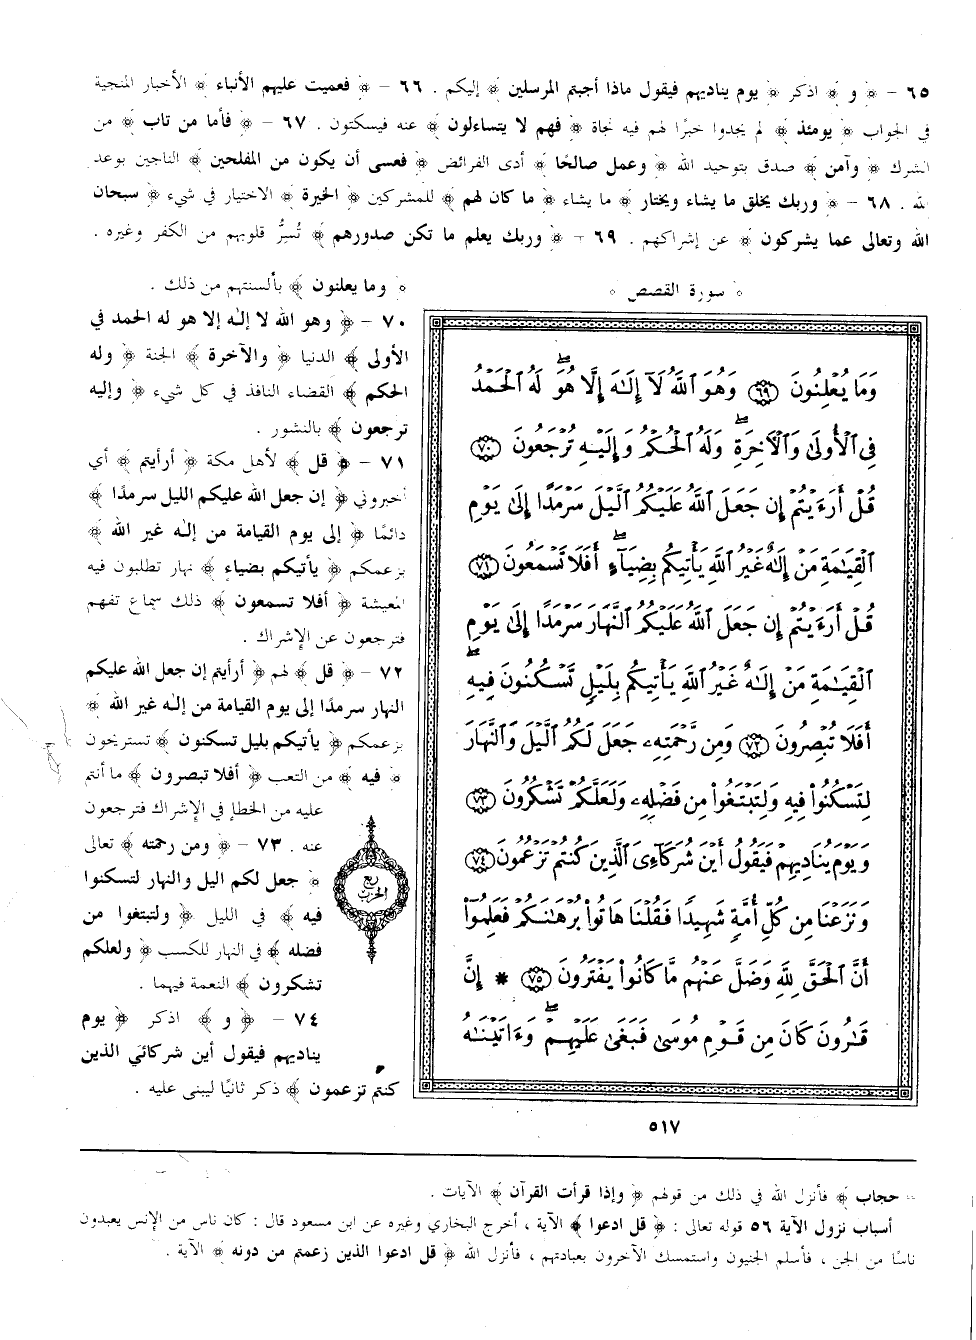 ٦٥ - ﴿ و ﴾ اذكر ﴿ يوم يناديهم فيقول ماذا أجبتم المرسلين ﴾ إليكم . ٦٦ - ﴿ فعميت عليهم الأنباء ﴾ الأخبار المنجية
في الجواب ﴿ يومئذ ﴾ لم يجدوا خبرًا لهم فيه نجاة ﴿ فهم لا يتساءلون ﴾ عنه فيسكتون . ٦٧ - ﴿ فأما من تاب ﴾ من
الشرك ﴿ وآمن ﴾ صدق بتوحيد الله ﴿ وعمل صالحًا ﴾ أدى الفرائض ﴿ فعسى أن يكون من المفلحين ﴾ الناجين بوعد
الله . ٦٨ - ﴿ وربك يخلق ما يشاء ويختار ﴾ ما يشاء ﴿ ما كان لهم ﴾ للمشركين ﴿ الخيرة ﴾ الاختيار في شيء ﴿ سبحان
الله وتعالى عما يشركون ﴾ عن إشراكهم . ٦٩ - ﴿ وربك يعلم ما تكن صدورهم ﴾ تُسِرُّ قلوبهم من الكفر وغيره .
﴿ سورة القصص ﴾
وَمَا يُعْلِنُونَ ٦٩ وَهُوَ ٱللَّهُ لَآ إِلَٰهَ إِلَّا هُوَۖ لَهُ ٱلْحَمْدُ
فِى ٱلْأُولَىٰ وَٱلْـَٔاخِرَةِۖ وَلَهُ ٱلْحُكْمُ وَإِلَيْهِ تُرْجَعُونَ ٧٠
قُلْ أَرَءَيْتُمْ إِن جَعَلَ ٱللَّهُ عَلَيْكُمُ ٱلَّيْلَ سَرْمَدًا إِلَىٰ يَوْمِ
ٱلْقِيَٰمَةِ مَنْ إِلَٰهٌ غَيْرُ ٱللَّهِ يَأْتِيكُم بِضِيَآءٍۖ أَفَلَا تَسْمَعُونَ ٧١
قُلْ أَرَءَيْتُمْ إِن جَعَلَ ٱللَّهُ عَلَيْكُمُ ٱلنَّهَارَ سَرْمَدًا إِلَىٰ يَوْمِ
ٱلْقِيَٰمَةِ مَنْ إِلَٰهٌ غَيْرُ ٱللَّهِ يَأْتِيكُم بِلَيْلٍ تَسْكُنُونَ فِيهِۖ
أَفَلَا تُبْصِرُونَ ٧٢ وَمِن رَّحْمَتِهِۦ جَعَلَ لَكُمُ ٱلَّيْلَ وَٱلنَّهَارَ
لِتَسْكُنُوا۟ فِيهِ وَلِتَبْتَغُوا۟ مِن فَضْلِهِۦ وَلَعَلَّكُمْ تَشْكُرُونَ ٧٣
وَيَوْمَ يُنَادِيهِمْ فَيَقُولُ أَيْنَ شُرَكَآءِىَ ٱلَّذِينَ كُنتُمْ تَزْعُمُونَ ٧٤
وَنَزَعْنَا مِن كُلِّ أُمَّةٍ شَهِيدًا فَقُلْنَا هَاتُوا۟ بُرْهَٰنَكُمْ فَعَلِمُوٓا۟
أَنَّ ٱلْحَقَّ لِلَّهِ وَضَلَّ عَنْهُم مَّا كَانُوا۟ يَفْتَرُونَ ٧٥ * إِنَّ
قَٰرُونَ كَانَ مِن قَوْمِ مُوسَىٰ فَبَغَىٰ عَلَيْهِمْۖ وَءَاتَيْنَٰهُ
٥١٧
﴿ وما يعلنون ﴾ بألسنتهم من ذلك .
٧٠ - ﴿ وهو الله لا إلٰه إلا هو له الحمد في
الأولى ﴾ الدنيا ﴿ والآخرة ﴾ الجنة ﴿ وله
الحكم ﴾ القضاء النافذ في كل شيء ﴿ وإليه
ترجعون ﴾ بالنشور .
٧١ - ﴿ قل ﴾ لأهل مكة ﴿ أرأيتم ﴾ أي
أخبروني ﴿ إن جعل الله عليكم الليل سرمدًا ﴾
دائمًا ﴿ إلى يوم القيامة من إلٰه غير الله ﴾
بزعمكم ﴿ يأتيكم بضياء ﴾ نهار تطلبون فيه
المعيشة ﴿ أفلا تسمعون ﴾ ذلك سماع تفهم
فترجعون عن الإشراك .
٧٢ - ﴿ قل ﴾ لهم ﴿ أرأيتم إن جعل الله عليكم
النهار سرمدًا إلى يوم القيامة من إلٰه غير الله ﴾
بزعمكم ﴿ يأتيكم بليل تسكنون ﴾ تستريحون
﴿ فيه ﴾ من التعب ﴿ أفلا تبصرون ﴾ ما أنتم
عليه من الخطإ في الإشراك فترجعون
عنه . ٧٣ - ﴿ ومن رحمته ﴾ تعالى
﴿ جعل لكم اليل والنهار لتسكنوا
فيه ﴾ في الليل ﴿ ولتبتغوا من
فضله ﴾ في النهار للكسب ﴿ ولعلكم
تشكرون ﴾ النعمة فيهما .
٧٤ - ﴿ و ﴾ اذكر ﴿ يوم
يناديهم فيقول أين شركائي الذين
كنتم تزعمون ﴾ ذكر ثانيًا ليبنى عليه .
ربع
الحزب
== حجاب ﴾ فأنزل الله في ذلك من قولهم ﴿ وإذا قرأت القرآن ﴾ الآيات .
أسباب نزول الآية ٥٦ قوله تعالى : ﴿ قل ادعوا ﴾ الآية ، أخرج البخاري وغيره عن ابن مسعود قال : كان ناس من الإنس يعبدون
ناسًا من الجن ، فأسلم الجنيون واستمسك الآخرون بعبادتهم ، فأنزل الله ﴿ قل ادعوا الذين زعمتم من دونه ﴾ الآية .